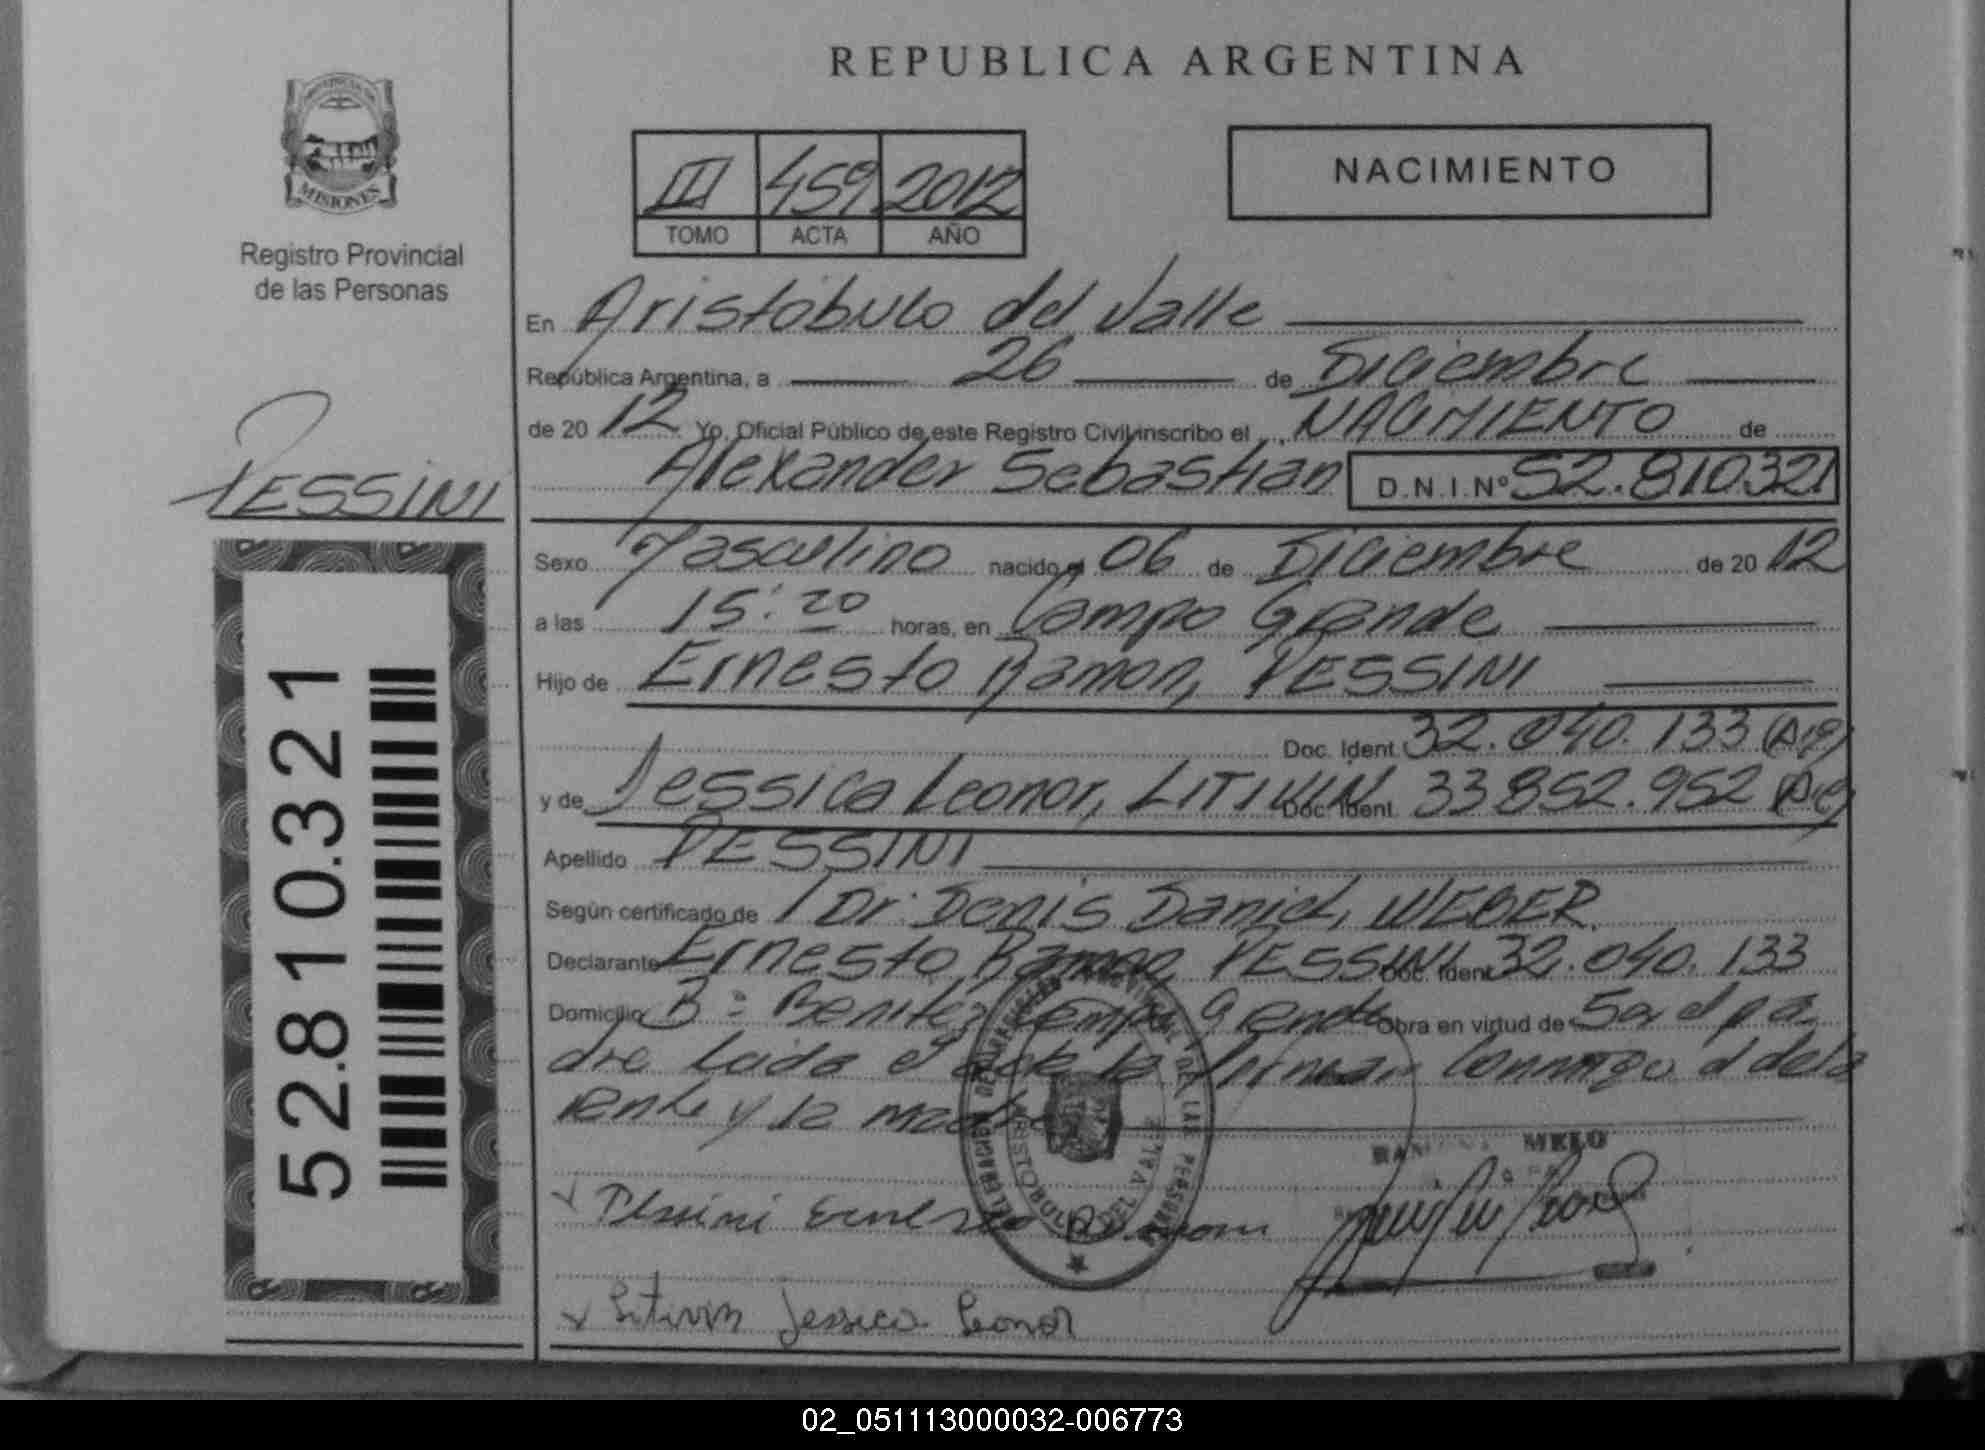 REPUBLICA ARGENTINA
MISIONES
Registro Provincial
de las Personas
III 459 2012
TOMO ACTA AÑO
NACIMIENTO
En Aristóbulo del Valle
República Argentina, a 26 de Diciembre
de 20 12 Yo, Oficial Público de este Registro Civil inscribo el NACIMIENTO de
Alexander Sebastian D.N.I.Nº 52.810.321
PESSINI
Sexo Masculino nacido el 06 de Diciembre de 20 12
a las 15:20 horas, en Campo Grande
Hijo de Ernesto Ramon, PESSINI
Doc. Ident. 32.040.133 (Arg)
y de Jessica Leonor, LITIVIN Doc. Ident. 33852.952 (Arg)
Apellido PESSINI
Según certificado de Dr. Denis Daniel, WEBER
Declarante Ernesto Ramon, PESSINI Doc. Ident. 32.040.133
Domicilio Bº Benitez Campo Grande Obra en virtud de Ser el pa
dre Leida el acta la firman conmigo el decla
rante y la madre
52.810.321
DEL VALLE
MELO
Pessini Ernesto Ramon
Litivin Jessica Leonor
02_051113000032-006773